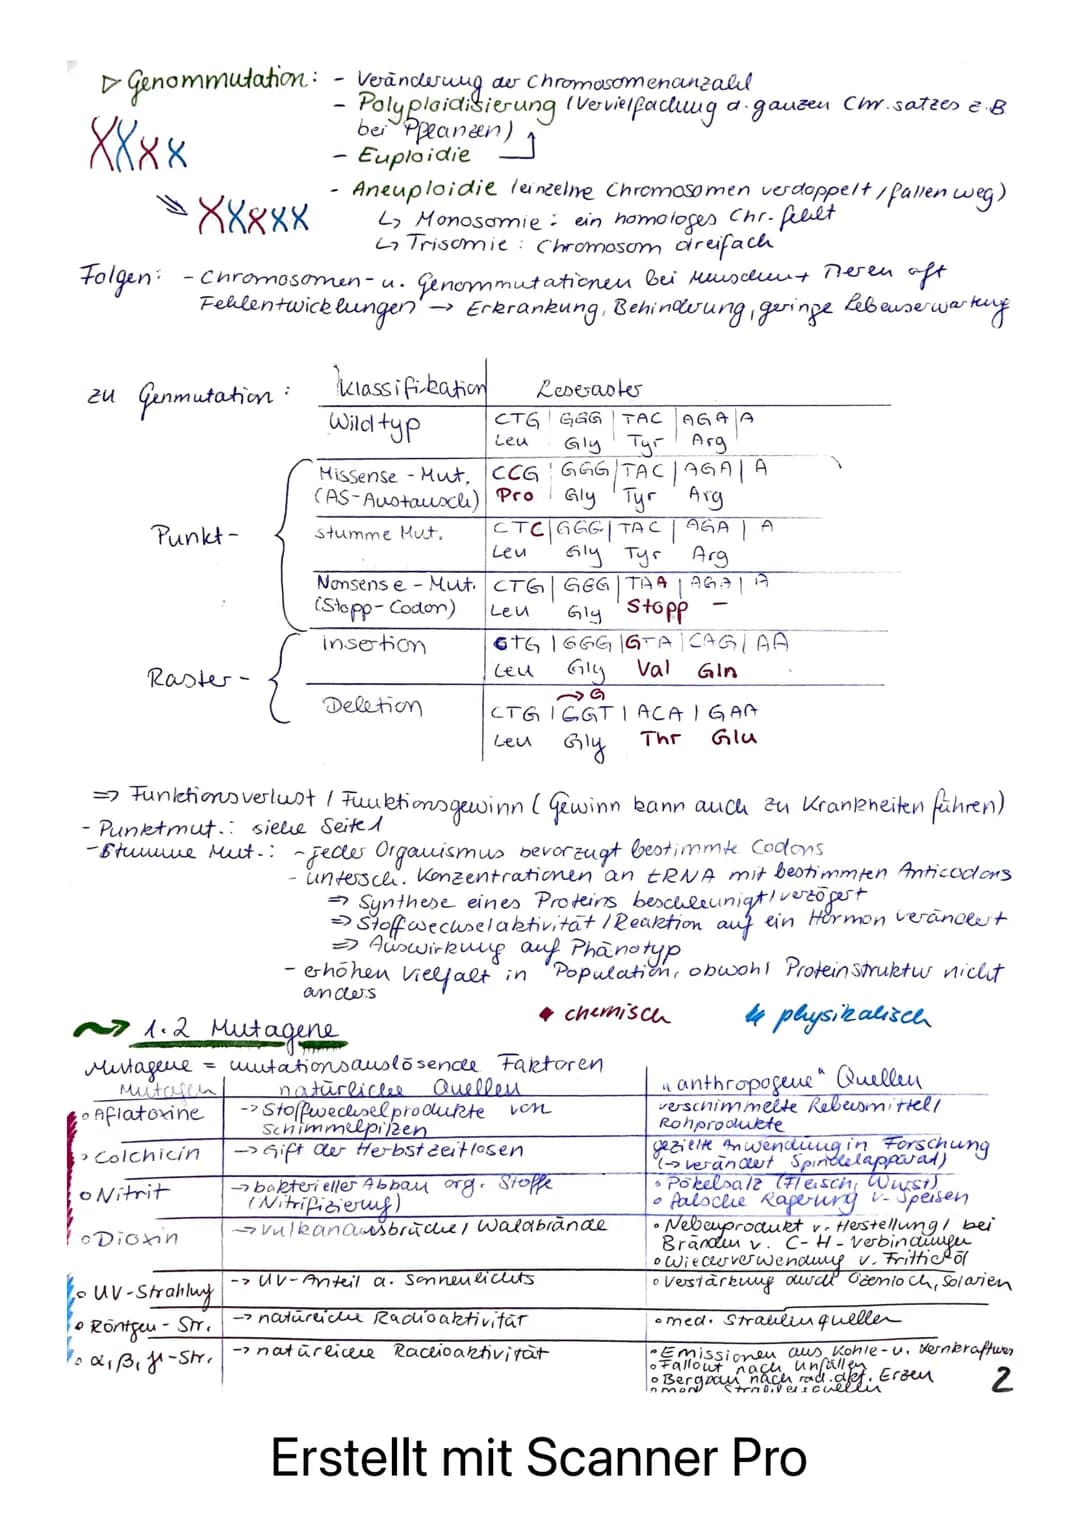 ▷ Genommutation: - Veränderung der Chromosomenanzahl
- Polyploidisierung (Vervielfachung d. ganzen Chr.satzes z.B
bei Pflanzen)
- Euploidie
- Aneuploidie (einzelne Chromosomen verdoppelt / fallen weg)
↳ Monosomie: ein homologes Chr. fehlt
↳ Trisomie: Chromosom dreifach
Folgen: - Chromosomen- u. Genommutationen bei Menschen + Tieren oft
Fehlentwicklungen → Erkrankung, Behinderung, geringe Lebenserwartung
zu Genmutation:
Klassifikation Leseraster
Wildtyp CTG | GGG | TAC | AGA | A
Leu Gly Tyr Arg
Missense-Mut. CCG | GGG | TAC | AGA | A
(AS-Austausch) Pro Gly Tyr Arg
Punkt- stumme Mut. CTC | GGG | TAC | AGA | A
Leu Gly Tyr Arg
Nonsense-Mut. CTG | GGG | TAA | AGA | A
(Stopp-Codon) Leu Gly Stopp -
Insertion CTG | GGG | GTA | CAG | AA
Raster- Leu Gly Val Gln
→ G
Deletion CTG | GGT | ACA | GAA
Leu Gly Thr Glu
⇒ Funktionsverlust / Funktionsgewinn (Gewinn kann auch zu Krankheiten führen)
- Punktmut.: siehe Seite 1
- Stumme Mut.: - jeder Organismus bevorzugt bestimmte Codons
- untersch. Konzentrationen an tRNA mit bestimmten Anticodons
⇒ Synthese eines Proteins beschleunigt / verzögert
⇒ Stoffwechselaktivität / Reaktion auf ein Hormon verändert
⇒ Auswirkung auf Phänotyp
- erhöhen Vielfalt in Population, obwohl Proteinstruktur nicht
anders
chemisch physikalisch
1.2 Mutagene
Mutagene = mutationsauslösende Faktoren
Mutagen natürliche Quellen "anthropogene" Quellen
Aflatoxine -> Stoffwechselprodukte von Schimmelpilzen verschimmelte Lebensmittel / Rohprodukte
Colchicin -> Gift der Herbstzeitlosen gezielte Anwendung in Forschung (-> verändert Spindelapparat)
Nitrit -> bakterieller Abbau org. Stoffe (Nitrifizierung) Pökelsalz (Fleisch, Wurst)
falsche Lagerung v. Speisen
Dioxin -> Vulkanausbrüche / Waldbrände Nebenprodukt v. Herstellung / bei Bränden v. C-H-Verbindungen
Wiederverwendung v. Frittieröl
UV-Strahlung -> UV-Anteil d. Sonnenlichts Verstärkung durch Ozonloch, Solarien
Röntgen-Str. -> natürliche Radioaktivität med. Strahlenquellen
α, β, γ-Str. -> natürliche Radioaktivität Emissionen aus Kohle- u. Kernkraftwer
Fallout nach Unfällen
Bergbau nach rad.akt. Erzen
2
Erstellt mit Scanner Pro